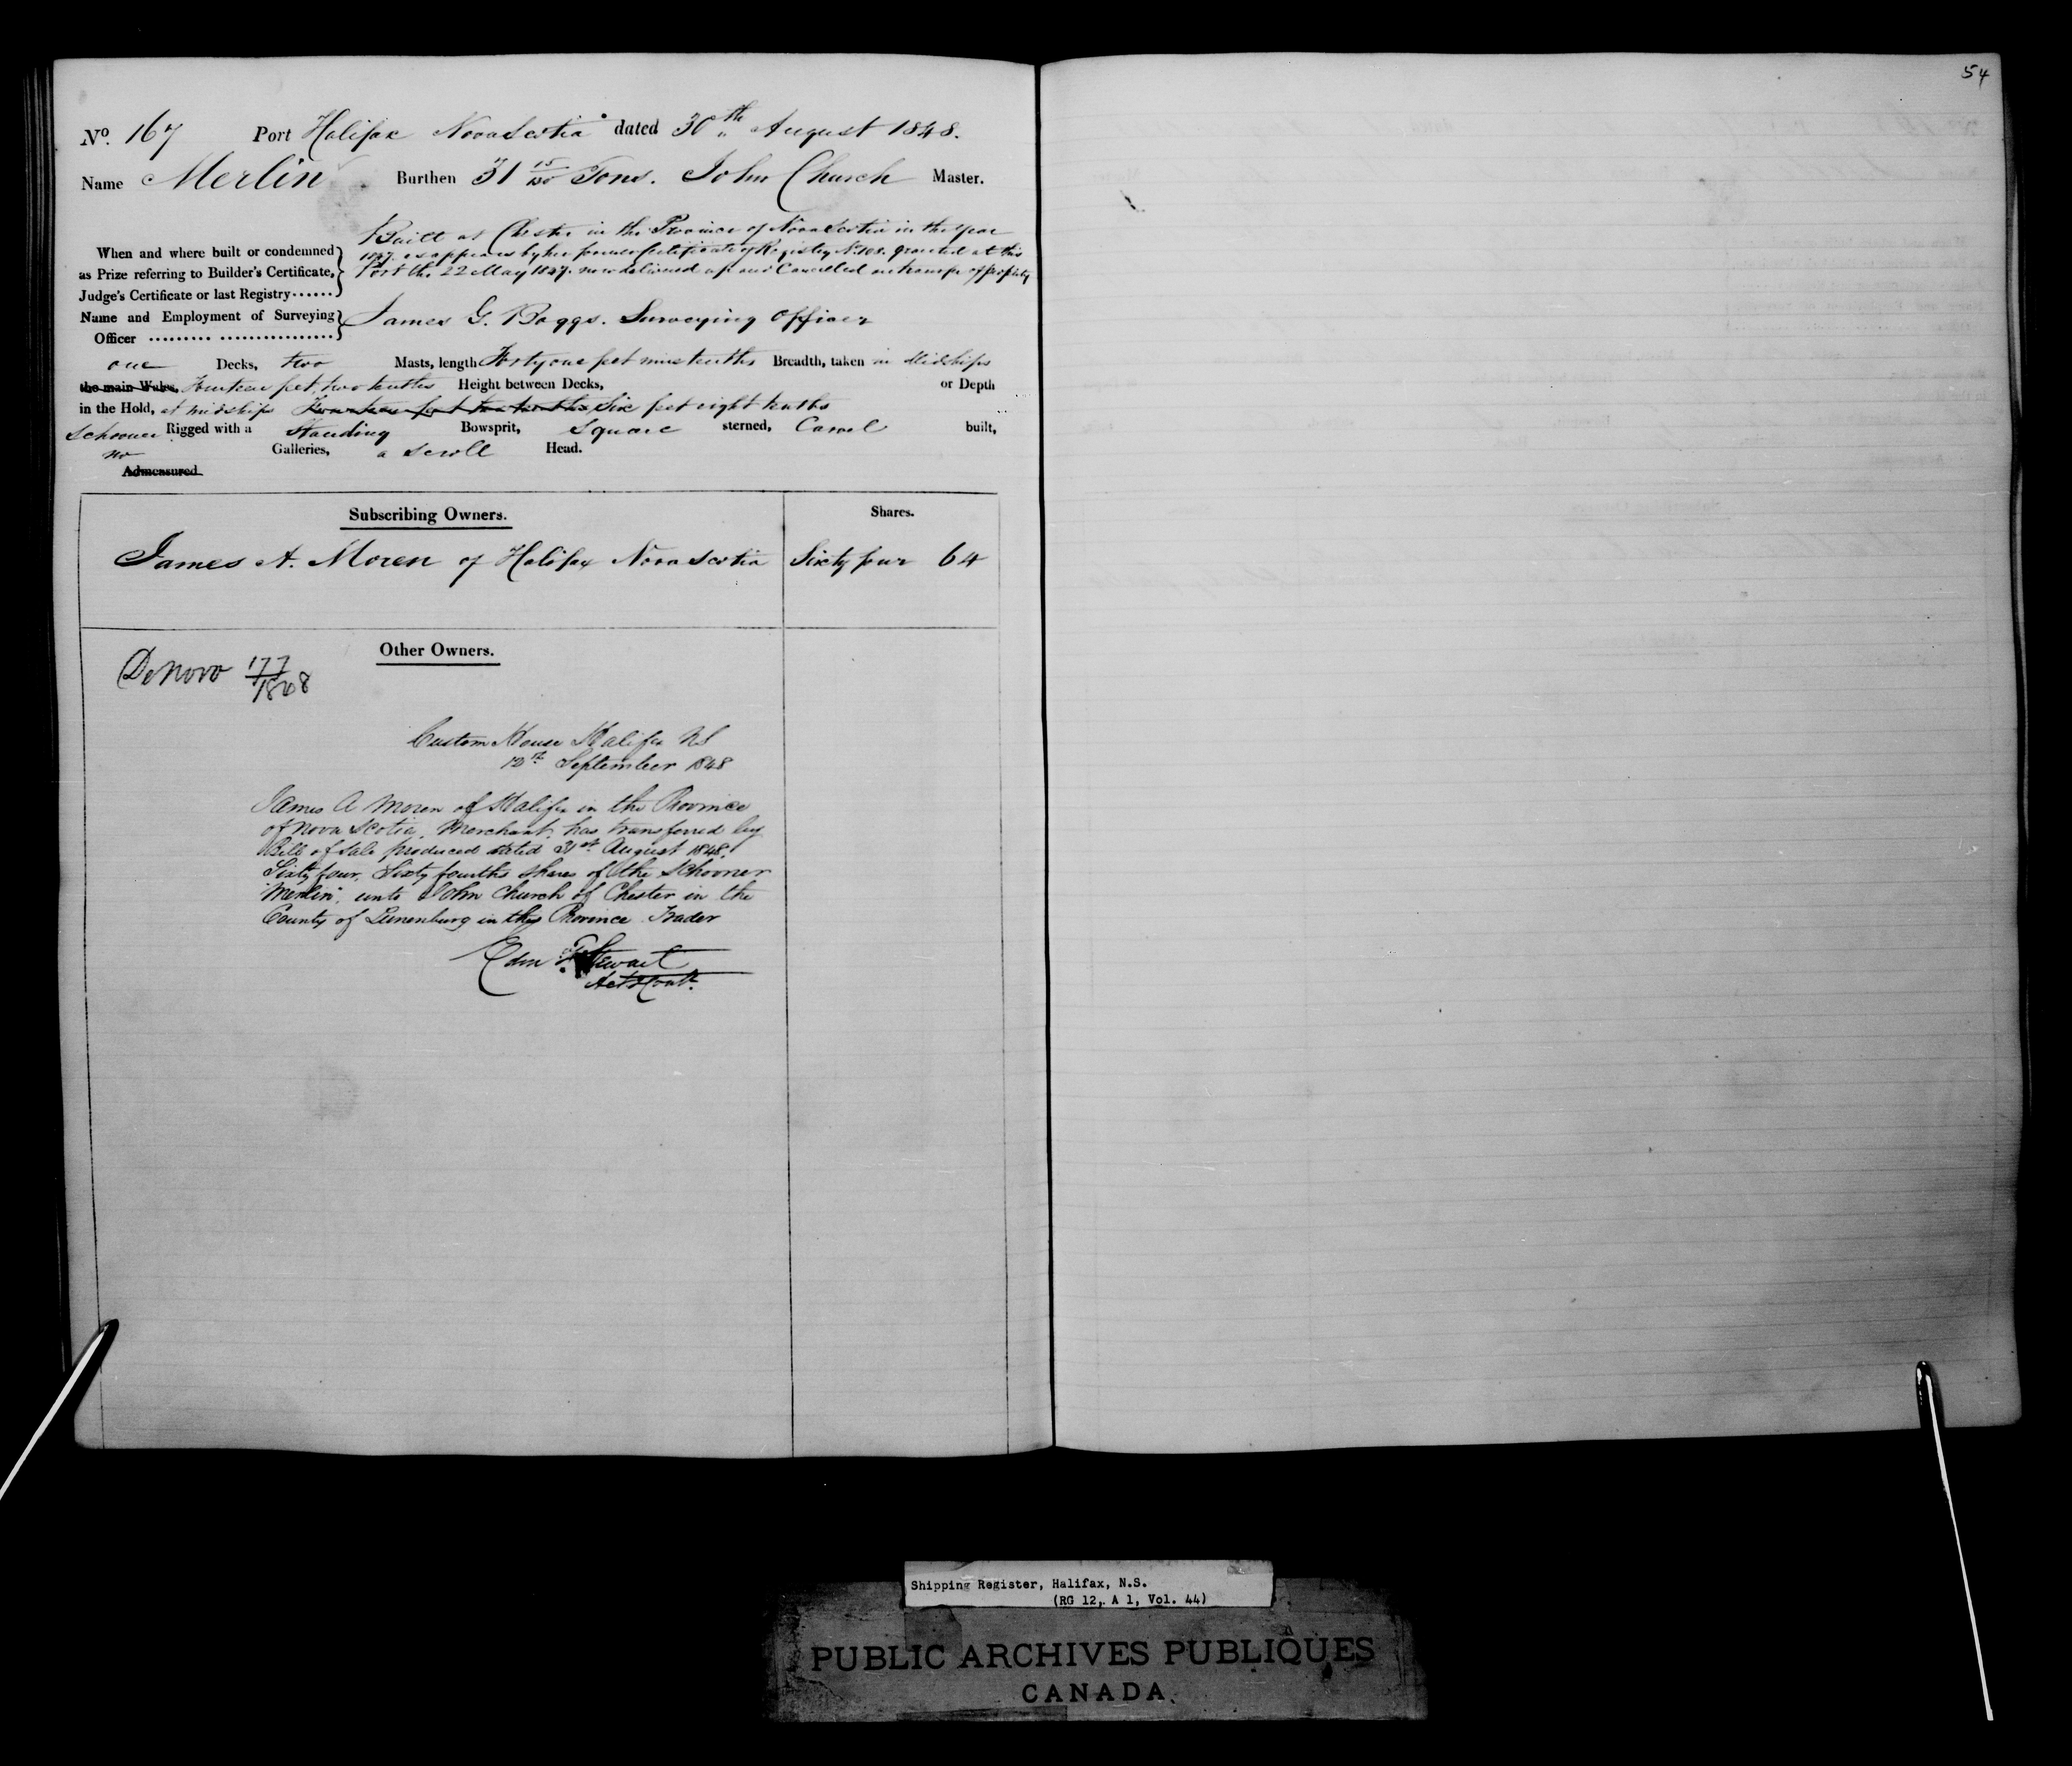 54
No. 167 Port Halifax Nova Scotia dated 30th August 1848.
Name Merlin Burthen 31 15/130 Tons. John Church Master.
When and where built or condemned as Prize referring to Builder's Certificate, Judge's Certificate or last Registry......
Built at Chester in the Province of Nova Scotia in the year
1847. as appears by her former Certificate of Registry No. 108. granted at this
Port the 22 May 1847. now delivered up and Cancelled on transfer of property
Name and Employment of Surveying Officer ......... ................
James G. Boggs. Surveying Officer
one Decks, two Masts, length Forty one feet nine tenths Breadth, taken in Midships
the main Wales, Fourteen feet, two tenths Height between Decks, or Depth
in the Hold, at midships Fourteen feet two tenths Six feet eight tenths
Schooner Rigged with a Standing Bowsprit, Square sterned, Carvel built,
no Galleries, a scroll Head.
Admeasured
Subscribing Owners. Shares.
James A. Moren of Halifax Nova Scotia Sixty four 64
Other Owners.
De Novo 177/1848
Custom House Halifax NS
12th September 1848
James A Moren of Halifax in the Province
of Nova Scotia, Merchant, has transferred by
Bill of Sale produced dated 31st August 1848,
Sixty four, Sixty fourths shares of the Schooner
"Merlin", unto John Church of Chester in the
County of Lunenburg in this Province Trader
Edm Stewart
Shipping Register, Halifax, N.S.
(RG 12, A 1, Vol. 44)
PUBLIC ARCHIVES PUBLIQUES
CANADA